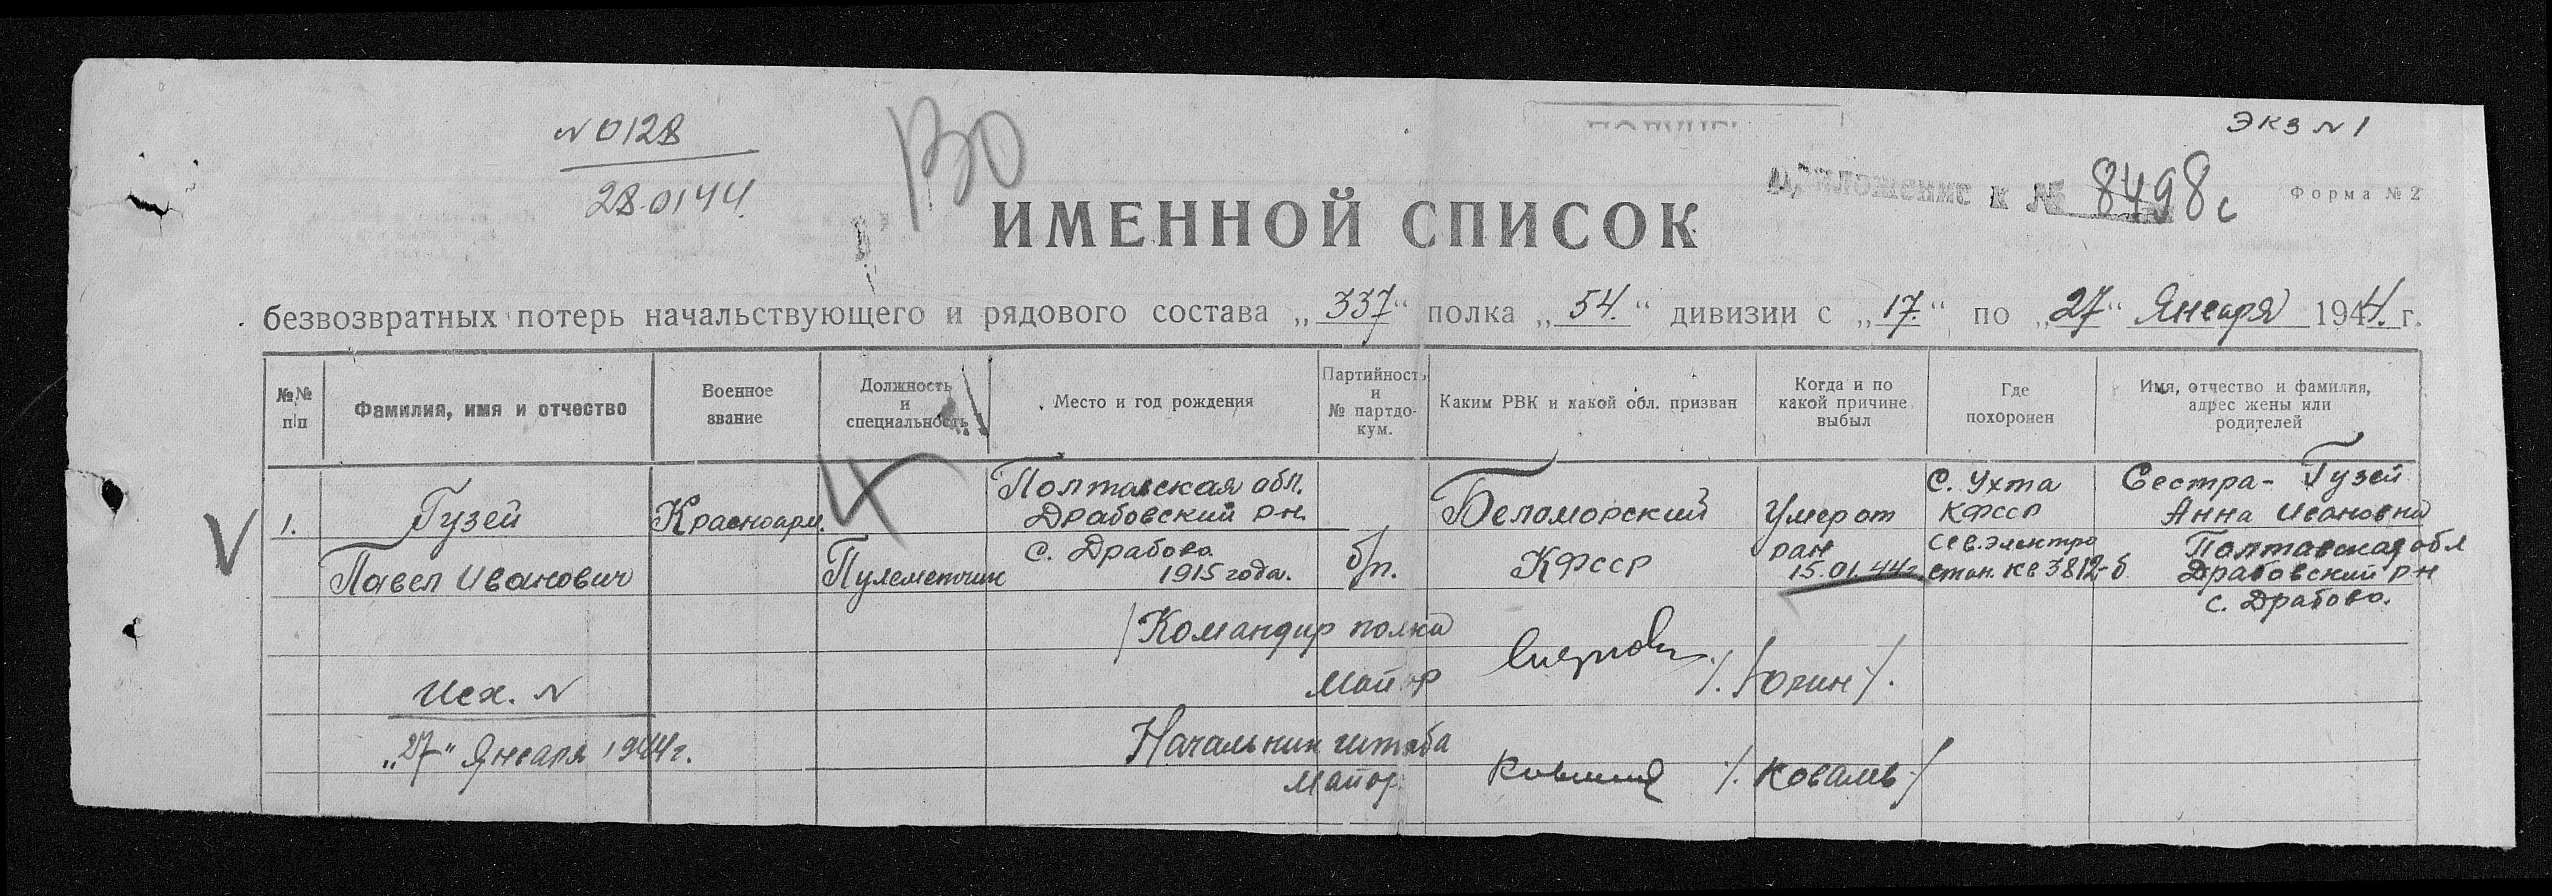 Экз N 1
N 0128
28.01.44
130
Приложение к № 8498с
Форма № 2
ИМЕННОЙ СПИСОК
безвозвратных потерь начальствующего и рядового состава „337“ полка „54.“ дивизии с „17.“ по „27“ Января 1944. г.
№№ п/п
Фамилия, имя и отчество
Военное
звание
Должность
и
специальность
Место и год рождения
Партийность
и
№ партдо-
кум.
Каким РВК и какой обл. призван
Когда и по
какой причине
выбыл
Где
похоронен
Имя, отчество и фамилия,
адрес жены или
родителей
1.
Гузей
Павел Иванович
Красноарм.
Пулеметчик
Полтавская обл.
Драбовский р-н.
с. Драбово.
1915 года.
б/п.
Беломорский
КФССР
Умер от
ран
15.01.44г.
С. Ухта
КФССР
Сев. электро
стан. кв 3812-б
Сестра - Гузей
Анна Ивановна
Полтавская обл
Драбовский р-н
с. Драбово.
Командир полка
майор /. Югин /.
Исх. N
„27“ Января 1944г.
Начальник штаба
майор /. Ковалев /